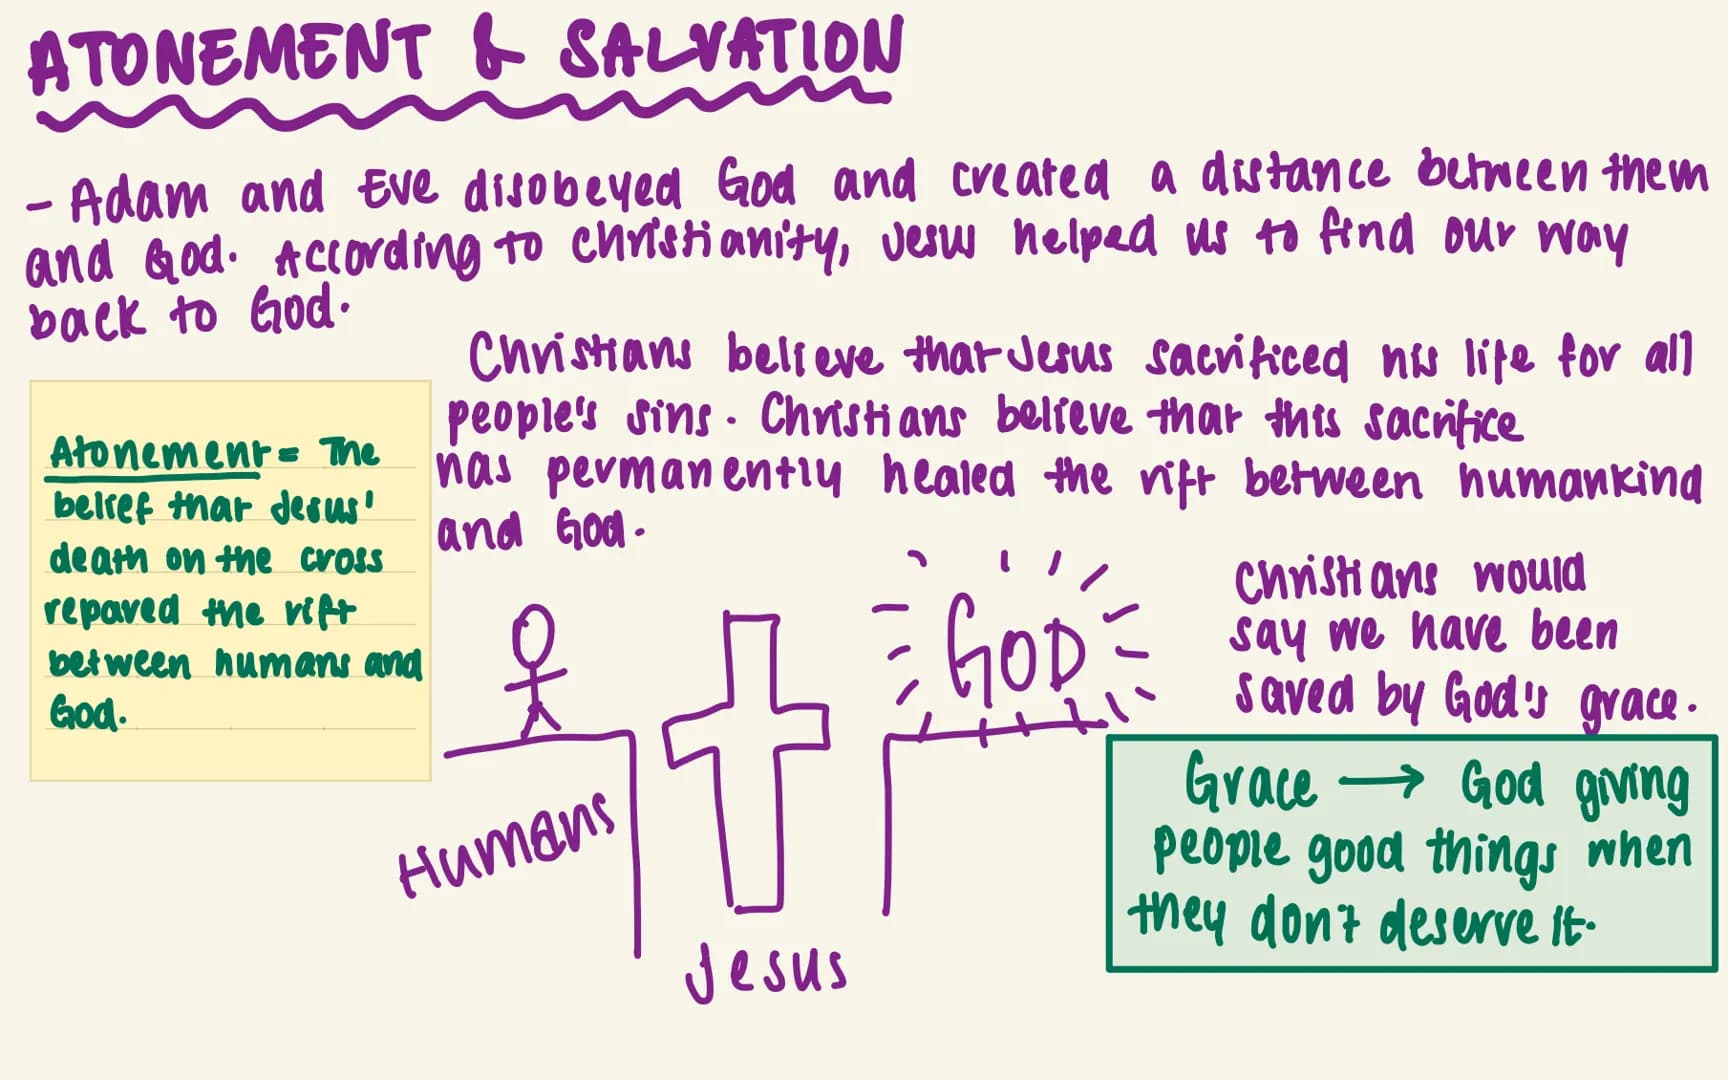 ATONEMENT & SALVATION
- Adam and Eve disobeyed God and created a distance between them
and God. According to Christianity, Jesus helped us to find our way
back to God.
Christians believe that Jesus sacrificed his life for all
people's sins. Christians believe that this sacrifice
has permanently healed the rift between humankind
and God.
Atonement = The
belief that Jesus'
death on the cross
repaved the rift
between humans and
God.
GOD
Christians would
say we have been
saved by God's grace.
Humans
Jesus
Grace → God giving
people good things when
they don't deserve it.